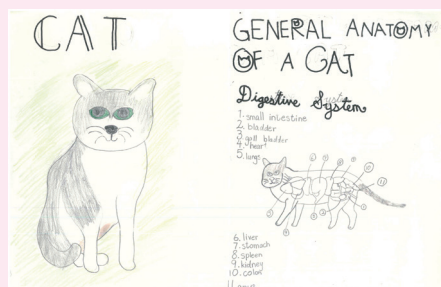 CAT
GENERAL ANATOMY
OF A CAT
Digestive System
1. small intestine
2. bladder
3. gall bladder
4. heart
5. lungs
6. liver
7. stomach
8. spleen
9. kidney
10. colon